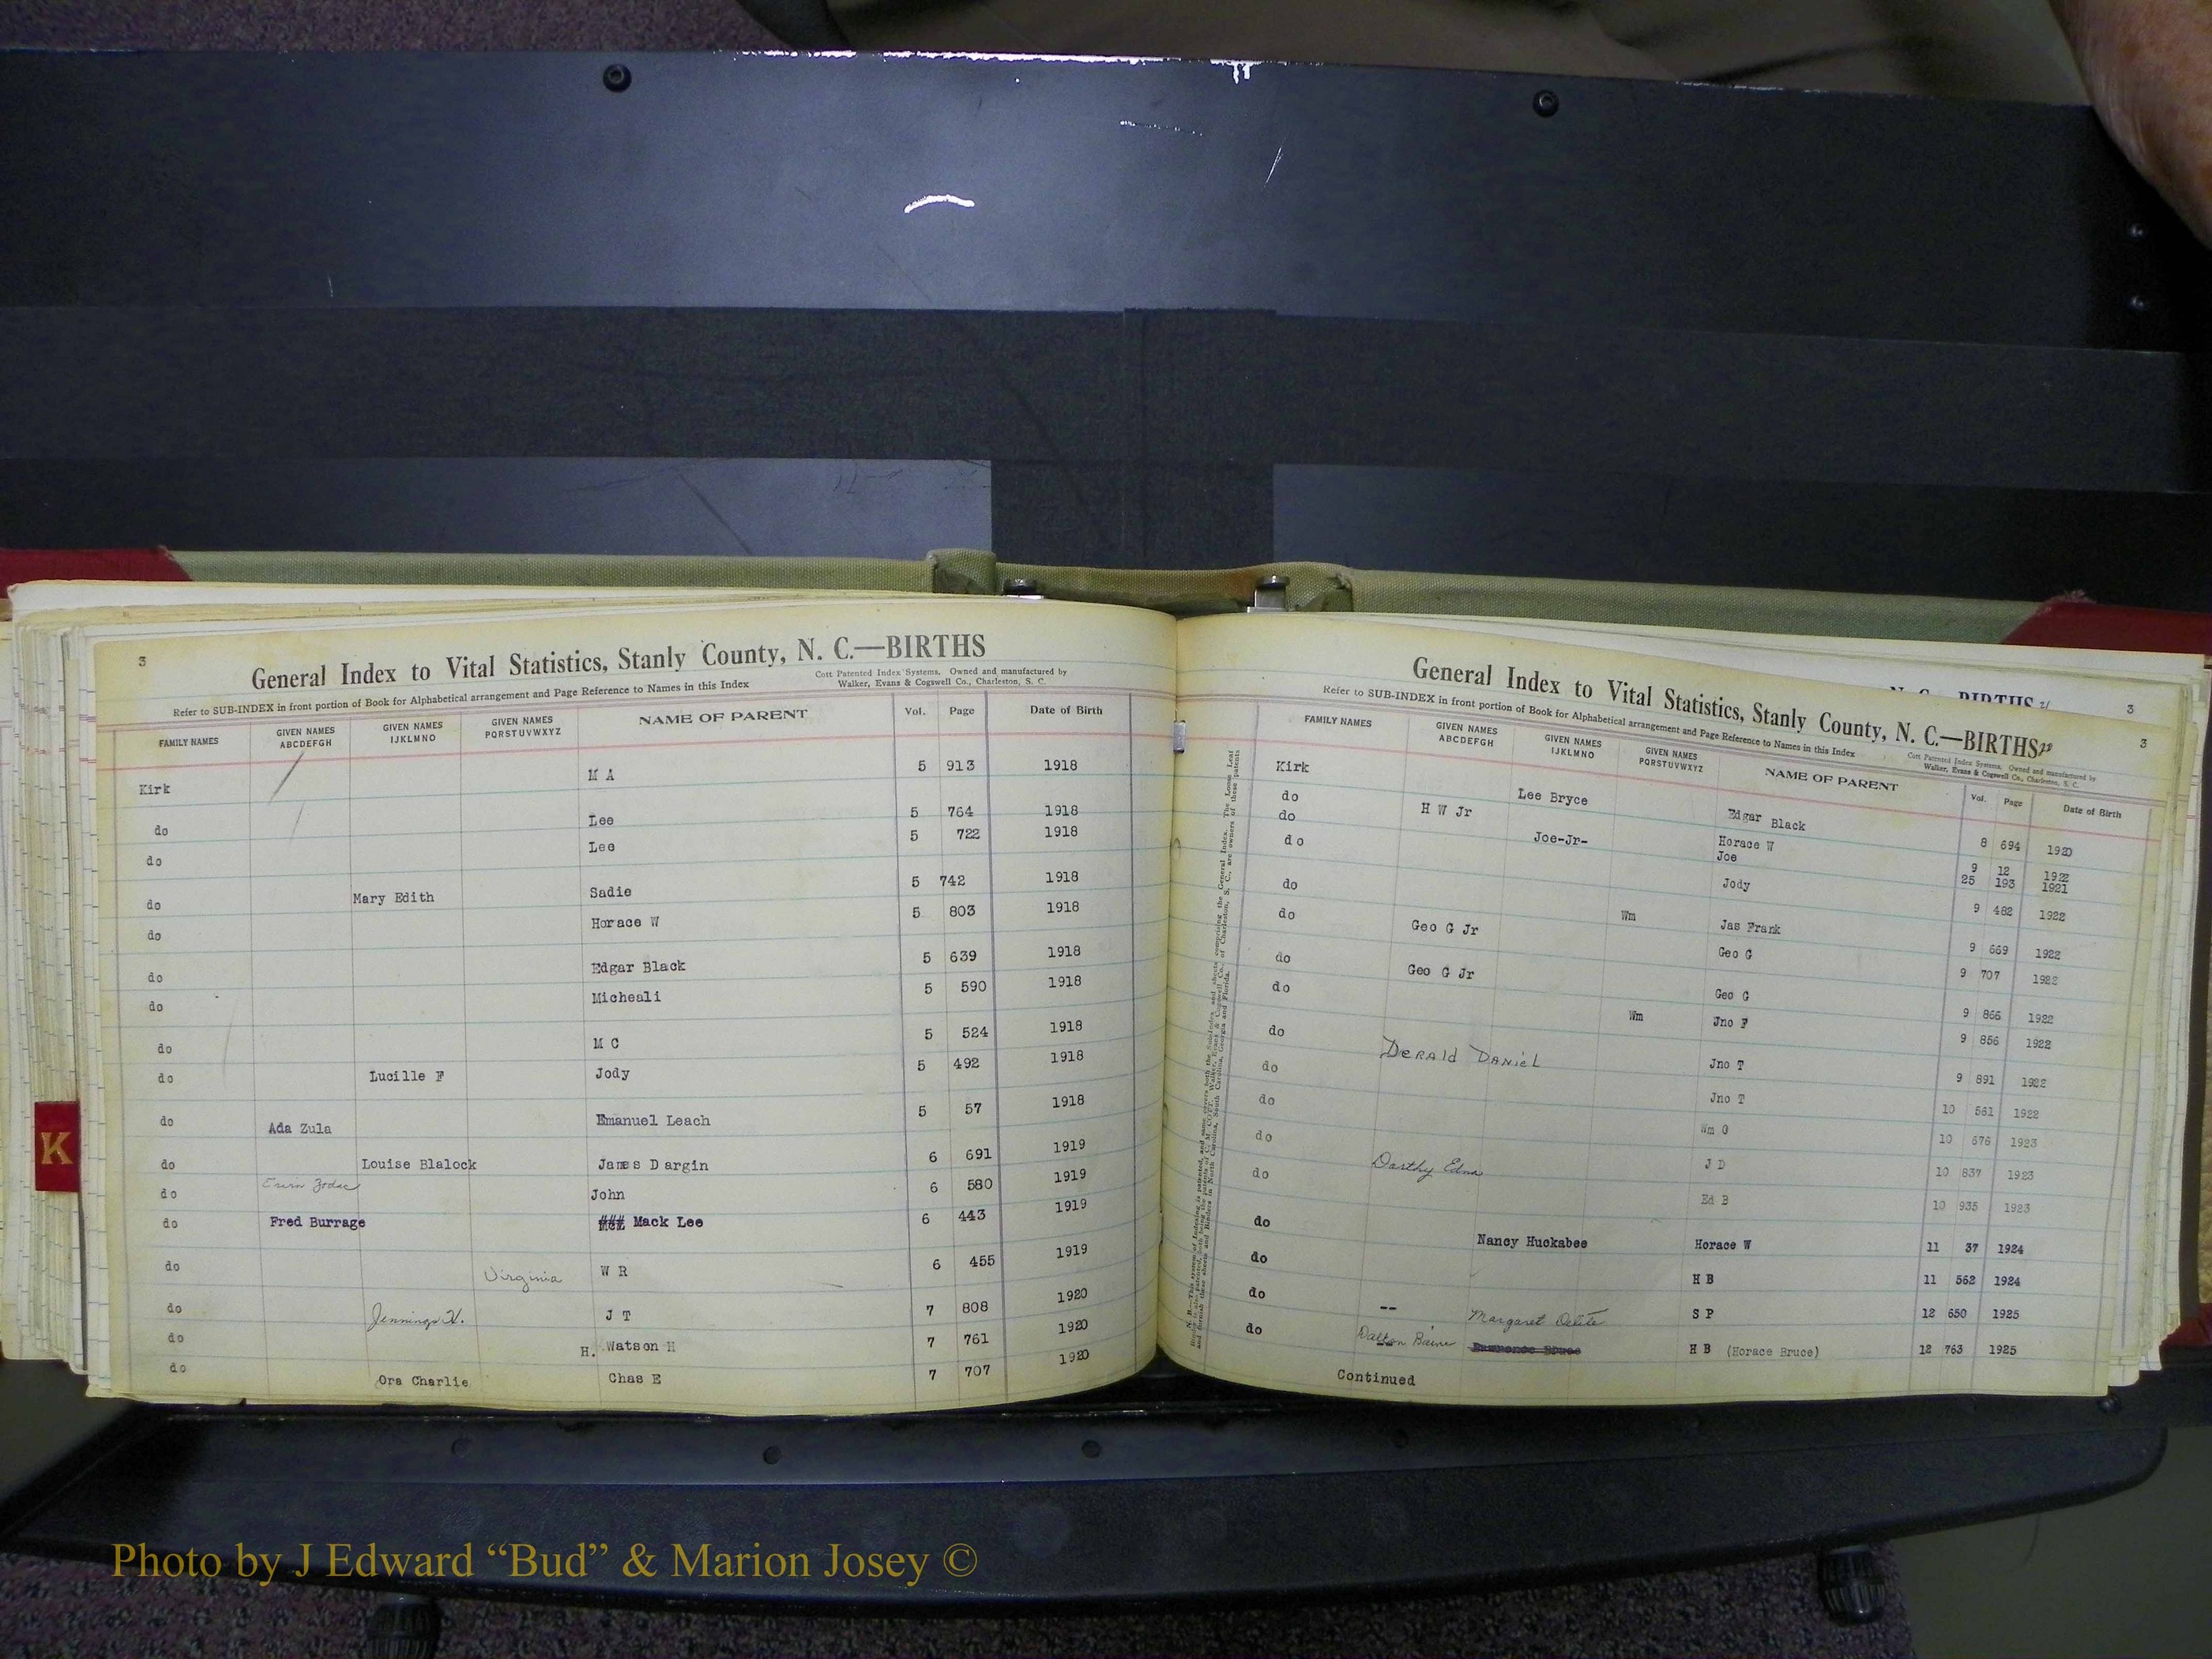 3
General Index to Vital Statistics, Stanly County, N. C.—BIRTHS
Refer to SUB-INDEX in front portion of Book for Alphabetical arrangement and Page Reference to Names in this Index
Cott Patented Index Systems. Owned and manufactured by
Walker, Evans & Cogswell Co., Charleston, S. C.
FAMILY NAMES GIVEN NAMES ABCDEFGH GIVEN NAMES IJKLMNO GIVEN NAMES PQRSTUVWXYZ NAME OF PARENT Vol. Page Date of Birth
Kirk M A 5 913 1918
do Lee 5 764 1918
do Lee 5 722 1918
do Mary Edith Sadie 5 742 1918
do Horace W 5 803 1918
do Edgar Black 5 639 1918
do Micheali 5 590 1918
do M C 5 524 1918
do Lucille F Jody 5 492 1918
do Ada Zula Emanuel Leach 5 57 1918
do Louise Blalock James Dargin 6 691 1919
do John 6 580 1919
do Fred Burrage Mack Lee 6 443 1919
do Virginia W R 6 455 1919
do Jennings H. J T 7 808 1920
do H. Watson H 7 761 1920
do Ora Charlie Chas E 7 707 1920
K
N. C.—BIRTHS
3
General Index to Vital Statistics, Stanly County, N. C.—BIRTHS
3
Refer to SUB-INDEX in front portion of Book for Alphabetical arrangement and Page Reference to Names in this Index
Cott Patented Index Systems. Owned and manufactured by
Walker, Evans & Cogswell Co., Charleston, S. C.
FAMILY NAMES GIVEN NAMES ABCDEFGH GIVEN NAMES IJKLMNO GIVEN NAMES PQRSTUVWXYZ NAME OF PARENT Vol. Page Date of Birth
Kirk Lee Bryce Edgar Black 8 694 1920
do H W Jr Horace W 9 12 1922
do Joe-Jr- Joe 25 193 1921
do Jody 9 482 1922
do Wm Jas Frank 9 669 1922
do Geo G Jr Geo G 9 707 1922
do Geo G Jr Geo G 9 866 1922
do Wm Jno F 9 856 1922
do Derald Daniel Jno T 9 891 1922
do Jno T 10 561 1922
do Wm G 10 676 1923
do Dorthy Edna J D 10 837 1923
do Ed B 10 935 1923
do Nancy Huckabee Horace W 11 37 1924
do H B 11 562 1924
do -- Margaret S P 12 650 1925
do Dalton H B (Horace Bruce) 12 763 1925
Continued
Photo by J Edward “Bud” & Marion Josey ©